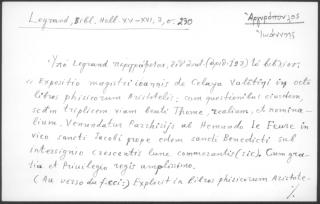 Legrand, Bibl. Hell. XV-XVI, 3, σ. 230
Ἀργυρόπουλος
Ἰωάννης
Ὑπὸ Legrand περιγράφεται, ἐνθ' ἀνωτ. (ἀριθ. 193) τὸ βιβλίον:
« Expositio magistri ioannis de Celaya Valētini in octo
libros phisicorum Aristotelis: cum questionibus eiusdem,
scdm triplicem viam beati Thome, realium, et nomina-
lium. Venundatur Parrhisijs ab Hemundo le Feure in
vico sancti Jacobi prope edem sancti Benedicti sub
intersignio crescentis lune commorantis (sic). Cum gra-
tia et Privilegio regis amplissimo.
(Au verso du f. cci:) Explicit in libros phisicorum Aristote-
%